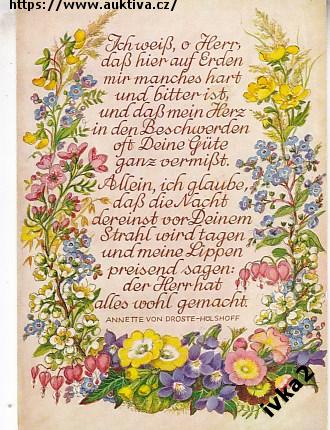 https://www.auktiva.cz/
Ich weiß, o Herr,
daß hier auf Erden
mir manches hart
und bitter ist,
und daß mein Herz
in den Beschwerden
oft Deine Güte
ganz vermißt.
Allein, ich glaube,
daß die Nacht
dereinst vor Deinem
Strahl wird tagen
und meine Lippen
preisend sagen:
der Herr hat
alles wohl gemacht.
ANNETTE VON DROSTE-HÜLSHOFF
ivka2